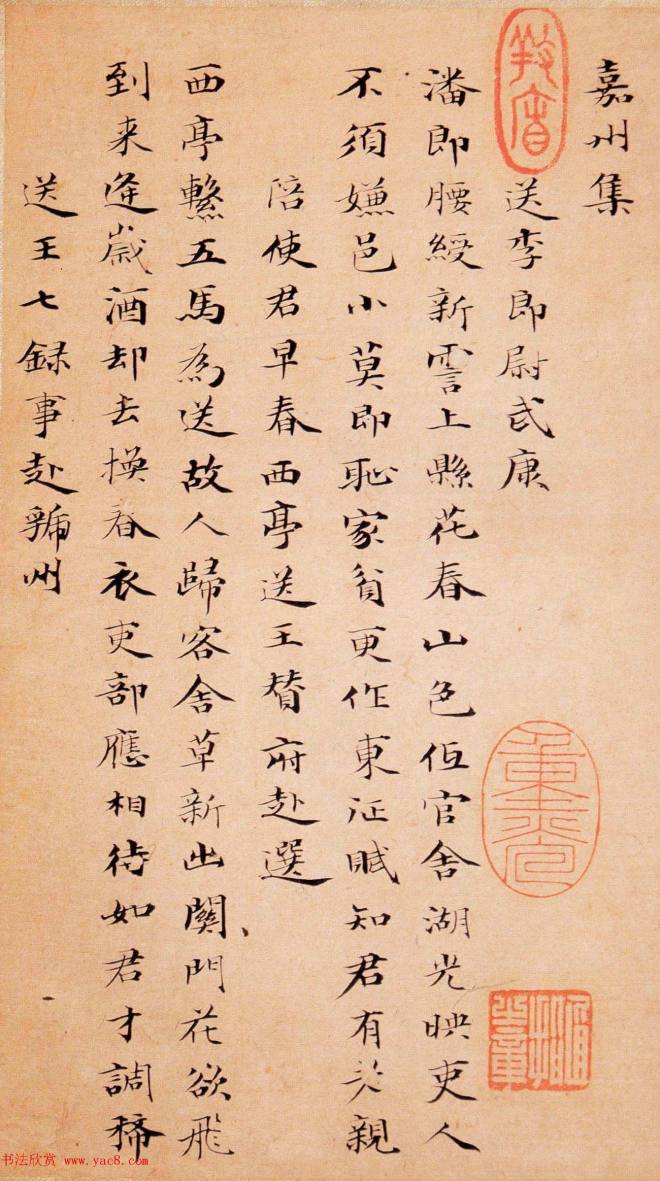 嘉州集
送李郎尉武康
潘郎腰綬新霅上縣花春山色低官舍湖光映吏人
不須嫌邑小莫即恥家貧更作東征賦知君有老親
陪使君早春西亭送王賛府赴選
西亭繫五馬為送故人歸客舍草新出關門花欲飛
到来逢歲酒却去換春衣吏部應相待如君才調稀
送王七録事赴虢州
书法欣赏 www.yac8.com